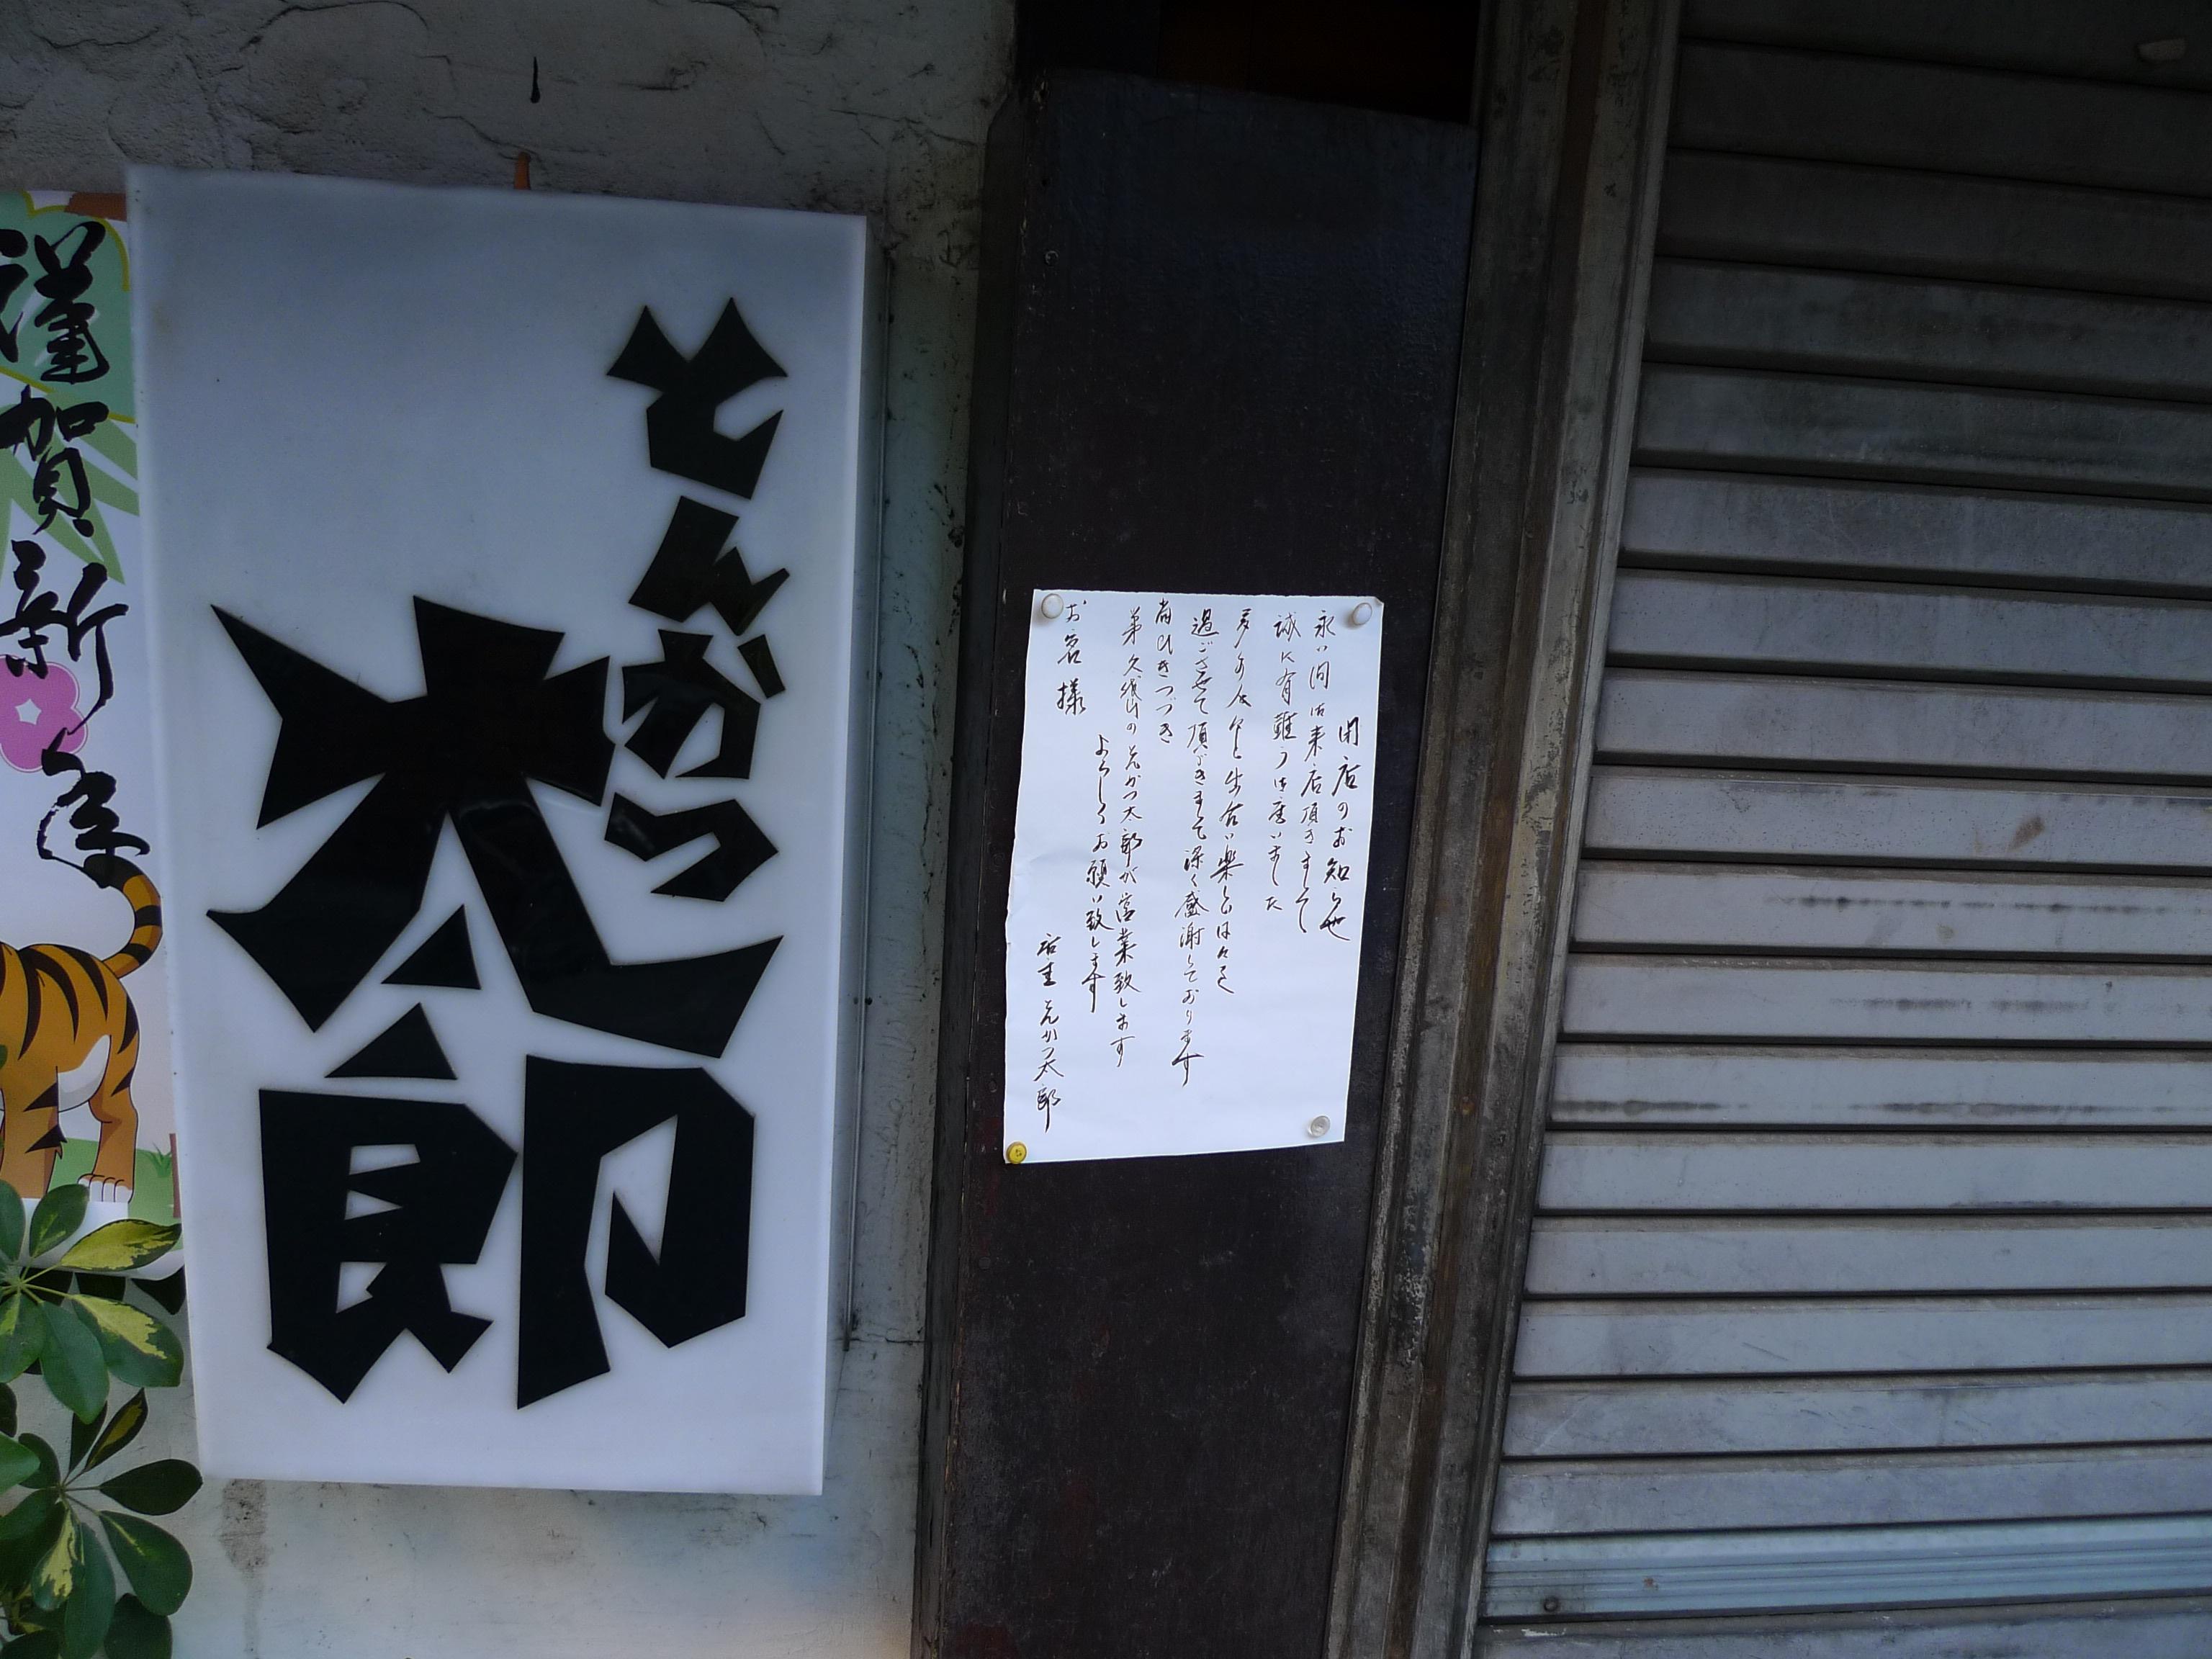 謹賀新年
とんかつ
太郎
閉店のお知らせ
永い間御来店頂きまして
誠に有難う御座いました
多くの人々と出合い楽しい日々を
過ごさせて頂だきまして深く感謝しております
尚ひきつづき
弟 久我山のとんかつ太郎が営業致します
よろしくお願い致します
お客様
店主 とんかつ太郎